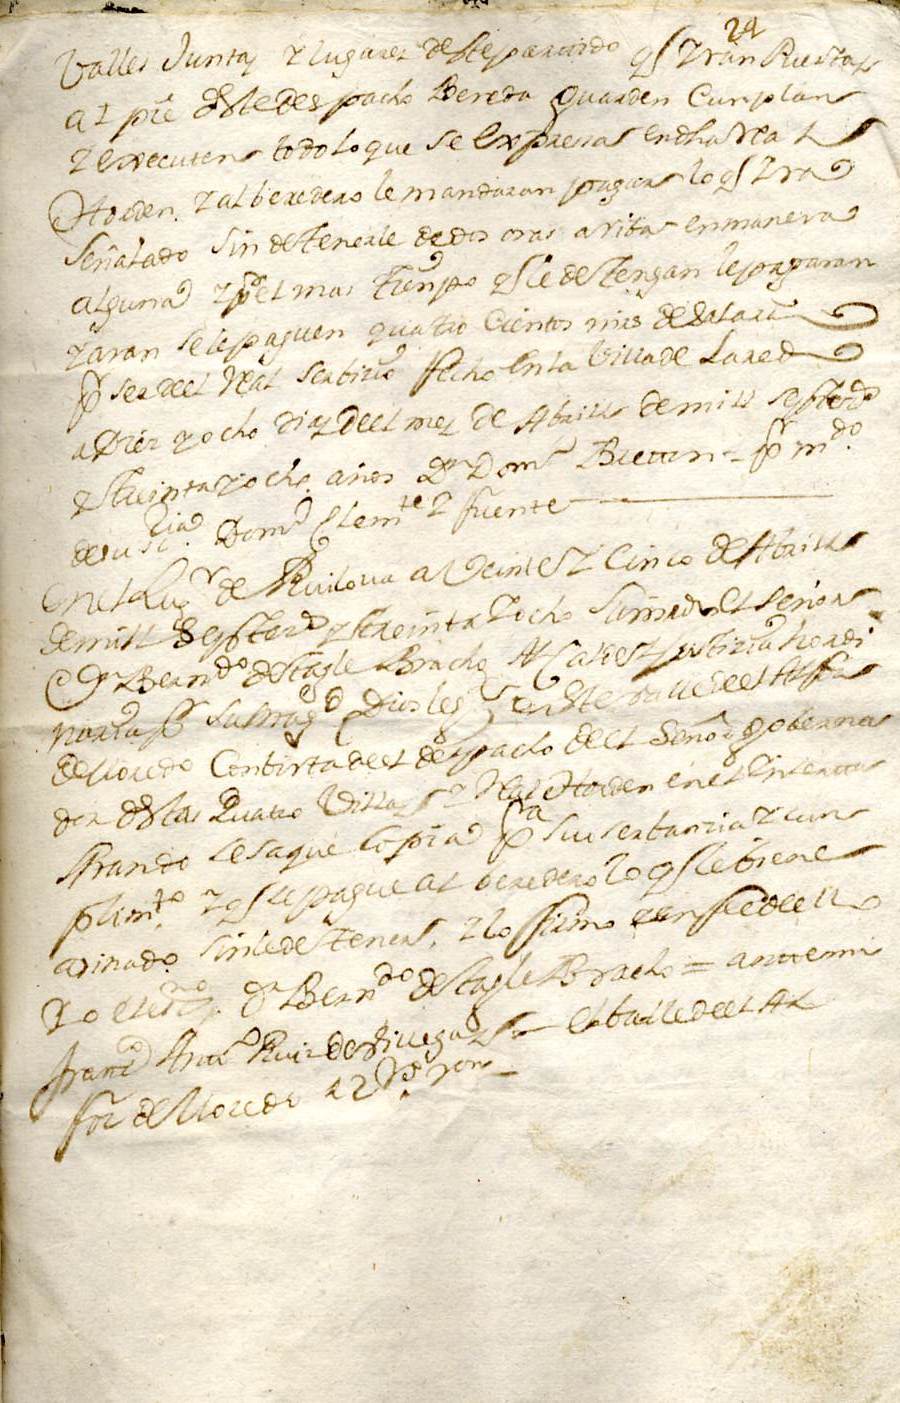 24
Valles Juntas y lugares deste partido qe yran Puestas
al pie deste despacho Vereda Guarden Cunplan
y executen todo lo que se expresa en dha Real
Horden. y al beredero le mandaran pagar lo qe yra
Señalado sin detenerle de dos oras arriba en manera
alguna y pr el mas tienpo qe le detengan le pagaran
y aran se le paguen quatro cientos mrs de salario
pr ser del Real serbicio fecho en la Villa de Laredo
a Diez y ocho dias del mes de Abrill de mill setezos
y treinta y ocho años Dn Domo Bretton = Pr mdo
de su sria Domo Clemte y fuente
En el Lugr de Ruiloba a Veinte y Cinco de Abrill
de mill Setezos y treinta y ocho Su mrd el señor
Dn Berndo de Tagle Bracho Alcalde y Justizia hordi
naria pr su Magd Dios le ge en este valle del Alfoz
de lloredo Con vista del despacho del Señor Goberna
dor de las Quatro Villas y Real Horden en el Inserta
Mando se saque copia pa su oserbanzia y cun
plimto y qe se pague al beredero lo qe le biene
asinado sin le detener, y lo firmo en fee de ello
Yo el esno Dn Berndo de Tagle Bracho = ante mi
Franco Anto Ruiz de Villegas el balle del Al
foz de lloredo 12 Rs von